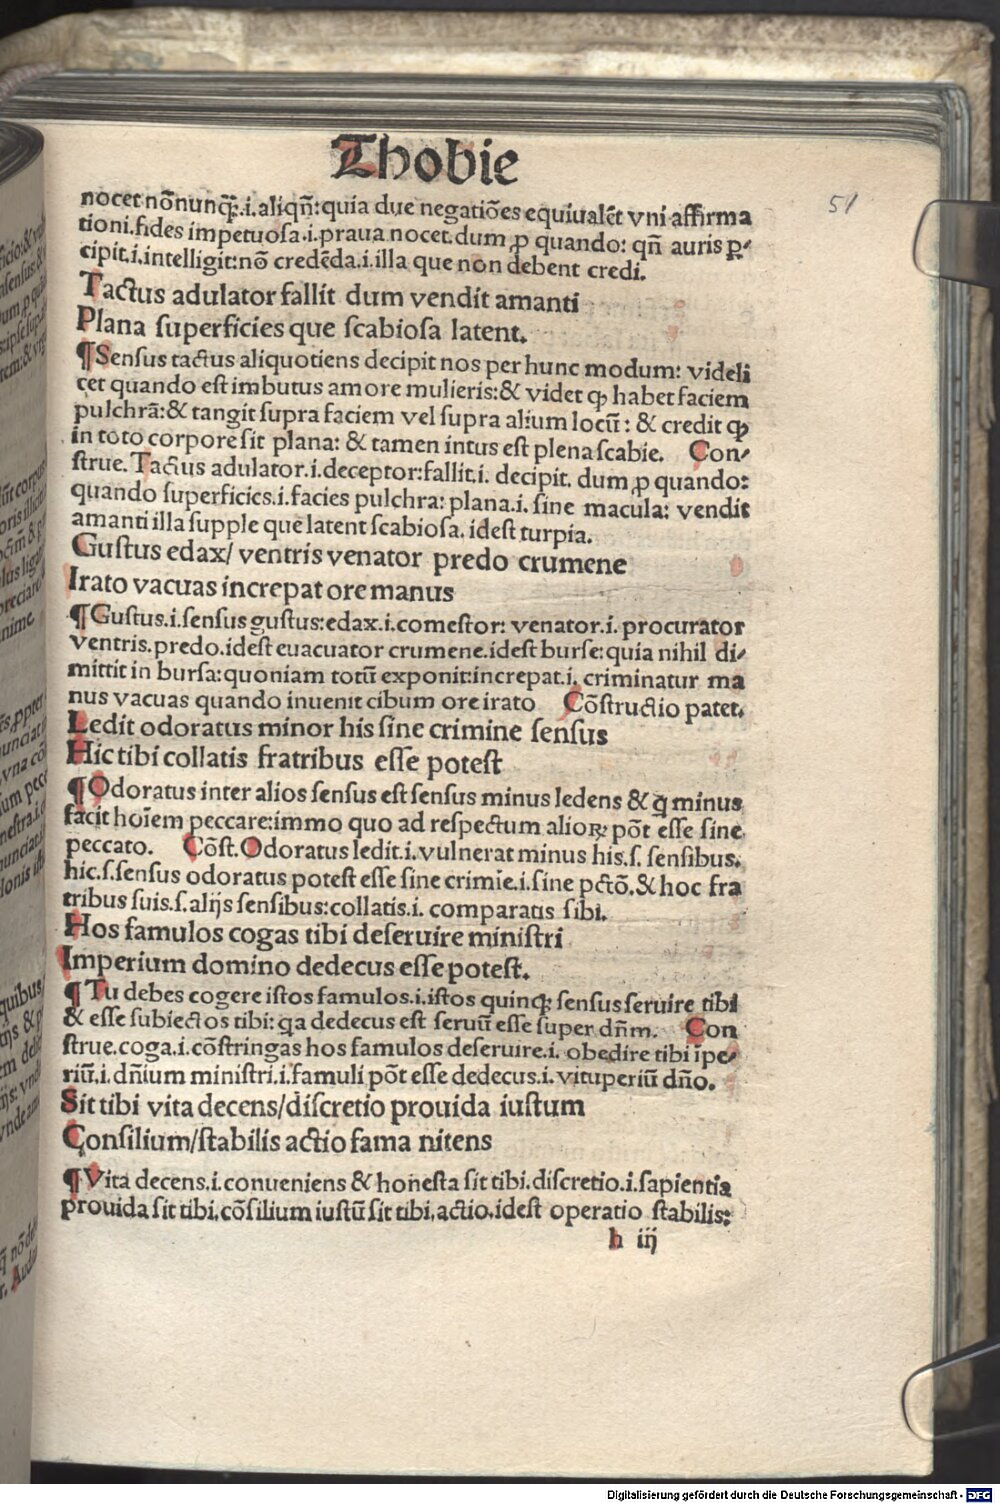 Thobie
51
nocet nõnunq̃ꝫ.i.aliqñ:quia due negatiões equiualẽt vni affirma
tioni.fides impetuosa.i.praua nocet.dum ꝓ quando: qñ auris ꝑ-
cipit.i.intelligit:nõ credẽda.i.illa que non debent credi.
Tactus adulator fallit dum vendit amanti
Plana superficies que scabiosa latent.
¶ Sensus tactus aliquotiens decipit nos per hunc modum: videli
cet quando est imbutus amore mulieris:& videt ꝙ habet faciem
pulchrã:& tangit supra faciem vel supra alium locũ: & credit ꝙ
in toto corpore sit plana: & tamen intus est plena scabie. Con-
strue. Tactus adulator.i.deceptor:fallit.i. decipit. dum ꝓ quando:
quando superficies.i.facies pulchra: plana.i. sine macula: vendit
amanti illa supple que latent scabiosa. idest turpia.
Gustus edax/ ventris venator predo crumene
Irato vacuas increpat ore manus
¶ Gustus.i.sensus gustus:edax.i.comestor: venator.i. procurator
ventris.predo.idest euacuator crumene.idest burse:quia nihil di-
mittit in bursa:quoniam totũ exponit:increpat.i. criminatur ma
nus vacuas quando inuenit cibum ore irato Cõstructio patet.
Ledit odoratus minor his sine crimine sensus
Hic tibi collatis fratribus esse potest
¶ Odoratus inter alios sensus est sensus minus ledens & q̃ minus
facit hoĩem peccare:immo quo ad respectum alioꝝ põt esse sine
peccato. Cõst. Odoratus ledit.i.vulnerat minus his.s. sensibus.
hic.s.sensus odoratus potest esse sine crimĩe.i.sine pctõ.& hoc fra
tribus suis.s.alijs sensibus:collatis.i. comparatis sibi.
Hos famulos cogas tibi deseruire ministri
Imperium domino dedecus esse potest.
¶ Tu debes cogere istos famulos.i.istos quinqꝫ sensus seruire tibi
& esse subiectos tibi: q̃a dedecus est seruũ esse super dñm. Con
strue.coga.i.cõstringas hos famulos deseruire.i. obedire tibi ĩpe-
riũ.i.dñium ministri.i.famuli põt esse dedecus.i.vituperiũ dño.
Sit tibi vita decens/discretio prouida iustum
Consilium/stabilis actio fama nitens
¶ Vita decens.i.conueniens & honesta sit tibi.discretio.i.sapientia
prouida sit tibi.cõsilium iustũ sit tibi.actio.idest operatio stabilis:
h iij
Digitalisierung gefördert durch die Deutsche Forschungsgemeinschaft - DFG